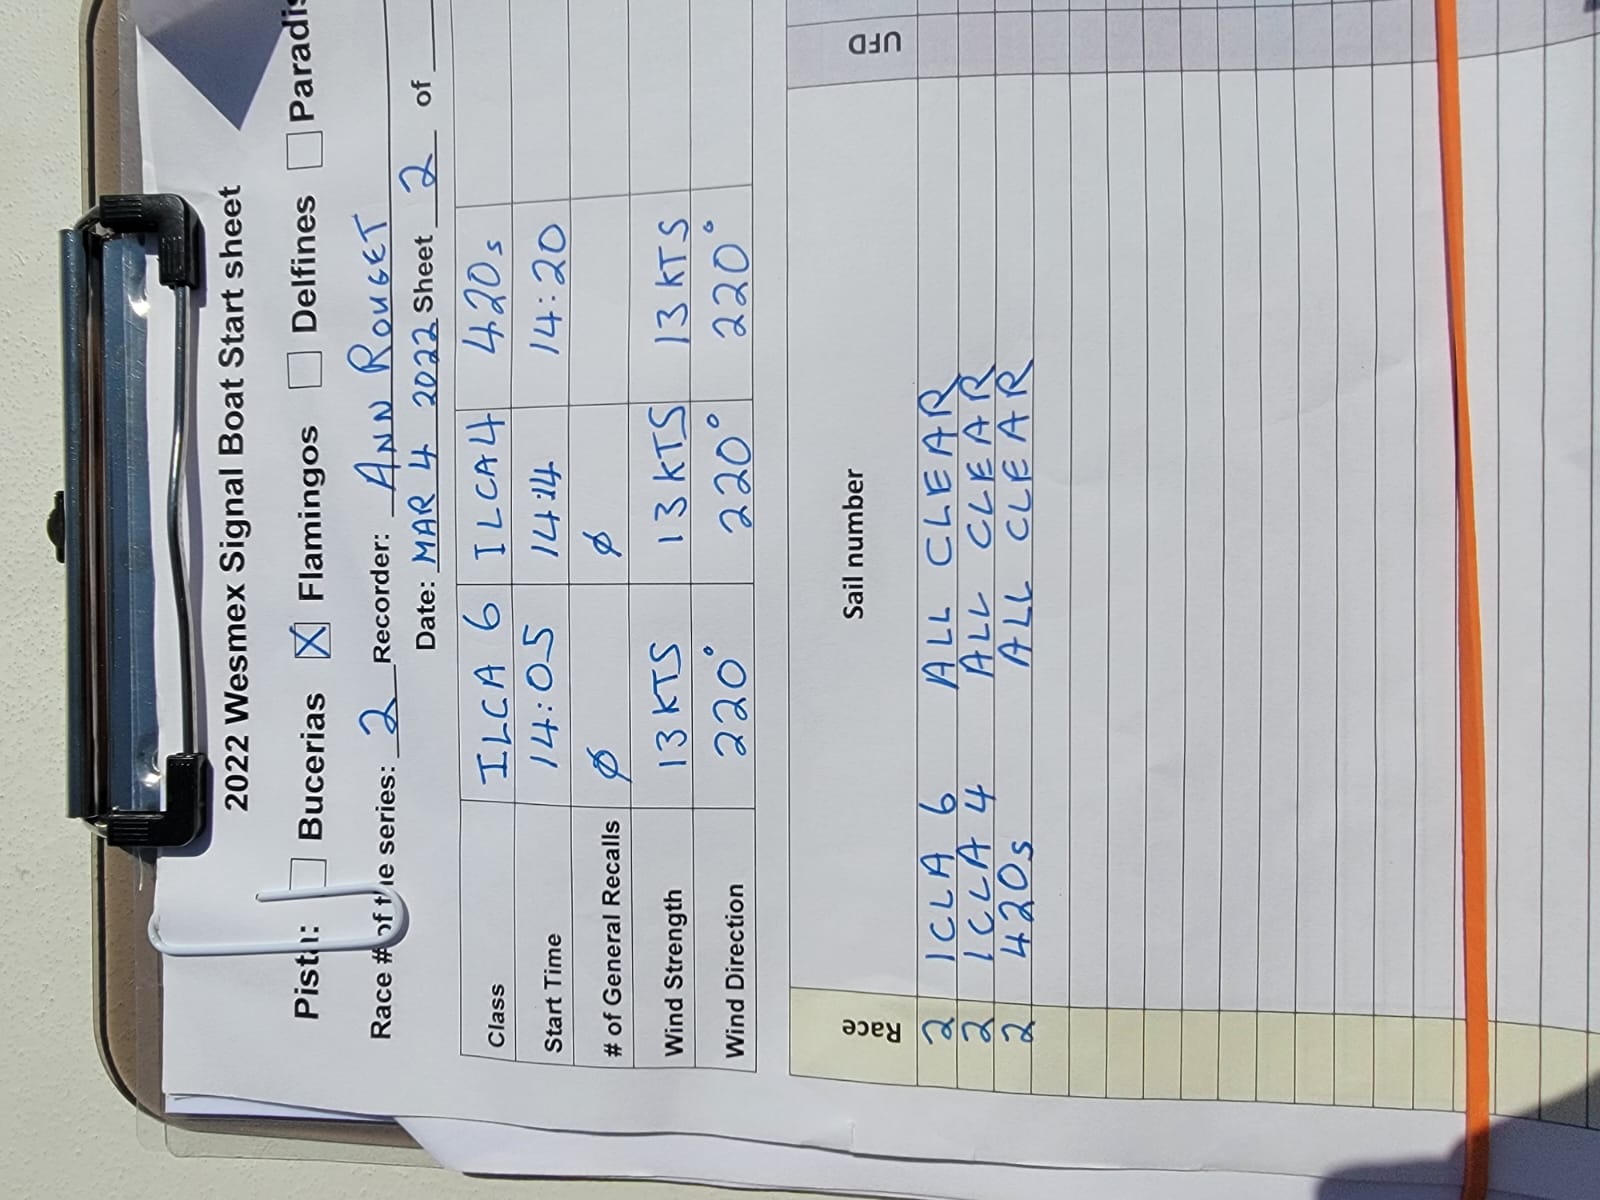 2022 Wesmex Signal Boat Start sheet
Pista: Bucerias X Flamingos Delfines Paradis
Race # of the series: 2 Recorder: ANN ROUGET
Date: MAR 4 2022 Sheet 2 of
Class ILCA 6 ILCA4 420s
Start Time 14:05 14:14 14:20
# of General Recalls ∅ ∅
Wind Strength 13 KTS 13 KTS 13 KTS
Wind Direction 220° 220° 220°
Race Sail number UFD
2 ICLA 6 ALL CLEAR
2 ICLA 4 ALL CLEAR
2 420s ALL CLEAR